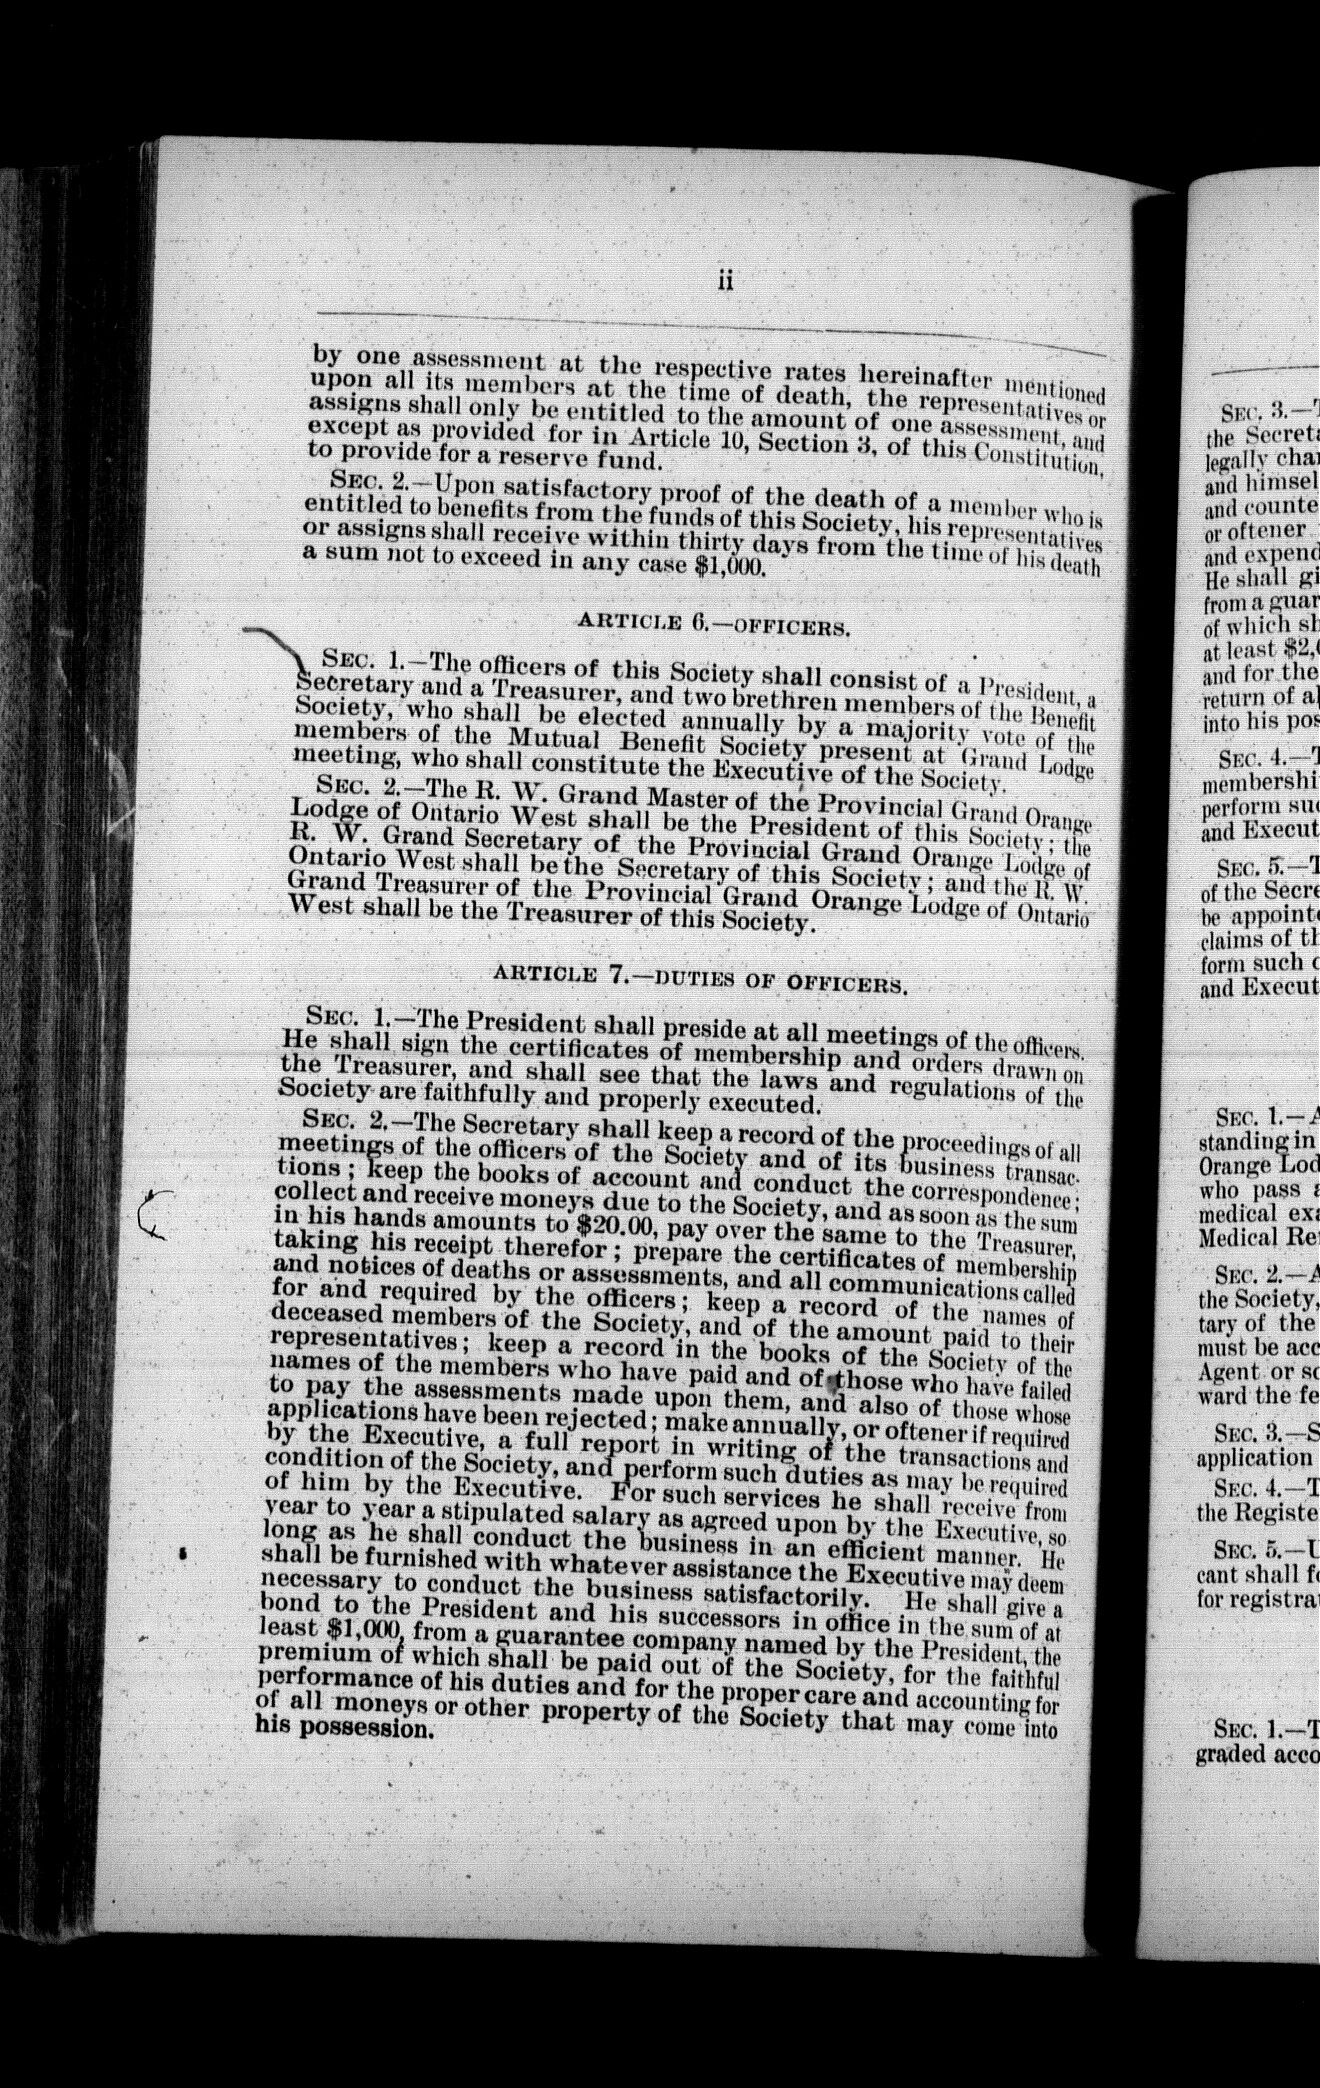 ii
by one assessment at the respective rates hereinafter mentioned
upon all its members at the time of death, the representatives or
assigns shall only be entitled to the amount of one assessment, and
except as provided for in Article 10, Section 3, of this Constitution,
to provide for a reserve fund.
SEC. 2.—Upon satisfactory proof of the death of a member who is
entitled to benefits from the funds of this Society, his representatives
or assigns shall receive within thirty days from the time of his death
a sum not to exceed in any case $1,000.
ARTICLE 6.—OFFICERS.
SEC. 1.—The officers of this Society shall consist of a President, a
Secretary and a Treasurer, and two brethren members of the Benefit
Society, who shall be elected annually by a majority vote of the
members of the Mutual Benefit Society present at Grand Lodge
meeting, who shall constitute the Executive of the Society.
SEC. 2.—The R. W. Grand Master of the Provincial Grand Orange
Lodge of Ontario West shall be the President of this Society; the
R. W. Grand Secretary of the Provincial Grand Orange Lodge of
Ontario West shall be the Secretary of this Society; and the R. W.
Grand Treasurer of the Provincial Grand Orange Lodge of Ontario
West shall be the Treasurer of this Society.
ARTICLE 7.—DUTIES OF OFFICERS.
SEC. 1.—The President shall preside at all meetings of the officers.
He shall sign the certificates of membership and orders drawn on
the Treasurer, and shall see that the laws and regulations of the
Society are faithfully and properly executed.
SEC. 2.—The Secretary shall keep a record of the proceedings of all
meetings of the officers of the Society and of its business transac-
tions; keep the books of account and conduct the correspondence;
collect and receive moneys due to the Society, and as soon as the sum
in his hands amounts to $20.00, pay over the same to the Treasurer,
taking his receipt therefor; prepare the certificates of membership
and notices of deaths or assessments, and all communications called
for and required by the officers; keep a record of the names of
deceased members of the Society, and of the amount paid to their
representatives; keep a record in the books of the Society of the
names of the members who have paid and of those who have failed
to pay the assessments made upon them, and also of those whose
applications have been rejected; make annually, or oftener if required
by the Executive, a full report in writing of the transactions and
condition of the Society, and perform such duties as may be required
of him by the Executive. For such services he shall receive from
year to year a stipulated salary as agreed upon by the Executive, so
long as he shall conduct the business in an efficient manner. He
shall be furnished with whatever assistance the Executive may deem
necessary to conduct the business satisfactorily. He shall give a
bond to the President and his successors in office in the sum of at
least $1,000, from a guarantee company named by the President, the
premium of which shall be paid out of the Society, for the faithful
performance of his duties and for the proper care and accounting for
of all moneys or other property of the Society that may come into
his possession.
SEC. 3.—
the
legally
and
and
or oftener
and
He shall
from a
of which
at least
and for the
return of
into his
SEC. 4.—
perform
and
SEC. 5.—
of the
be
claims of
form such
and
SEC. 1.—
standing in
Orange
who pass
medical
Medical
SEC. 2.—
the Society,
tary of the
must be
Agent or
ward the
SEC. 3.—
application
SEC. 4.—
the
SEC. 5.—
cant shall
for
SEC. 1.—
graded